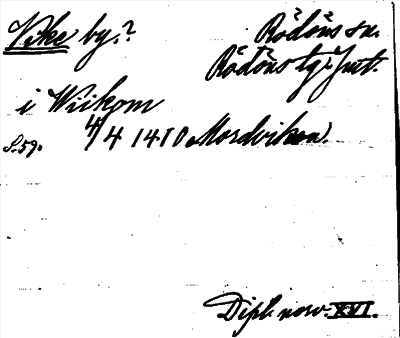 Vike by.? Rödöns sn.
Rödöns tg. Jmt.
i Wiikom
S. 59. 4/4 1410 Mordviken.
Dipl. norv. XVI.